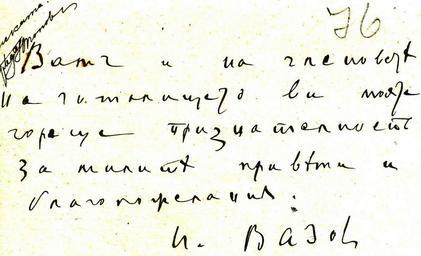 76
Вамъ и на членоветѣ
на читалището ви моята
гореща признателность
за милитѣ привѣти и
благопожелания.
И. Вазов